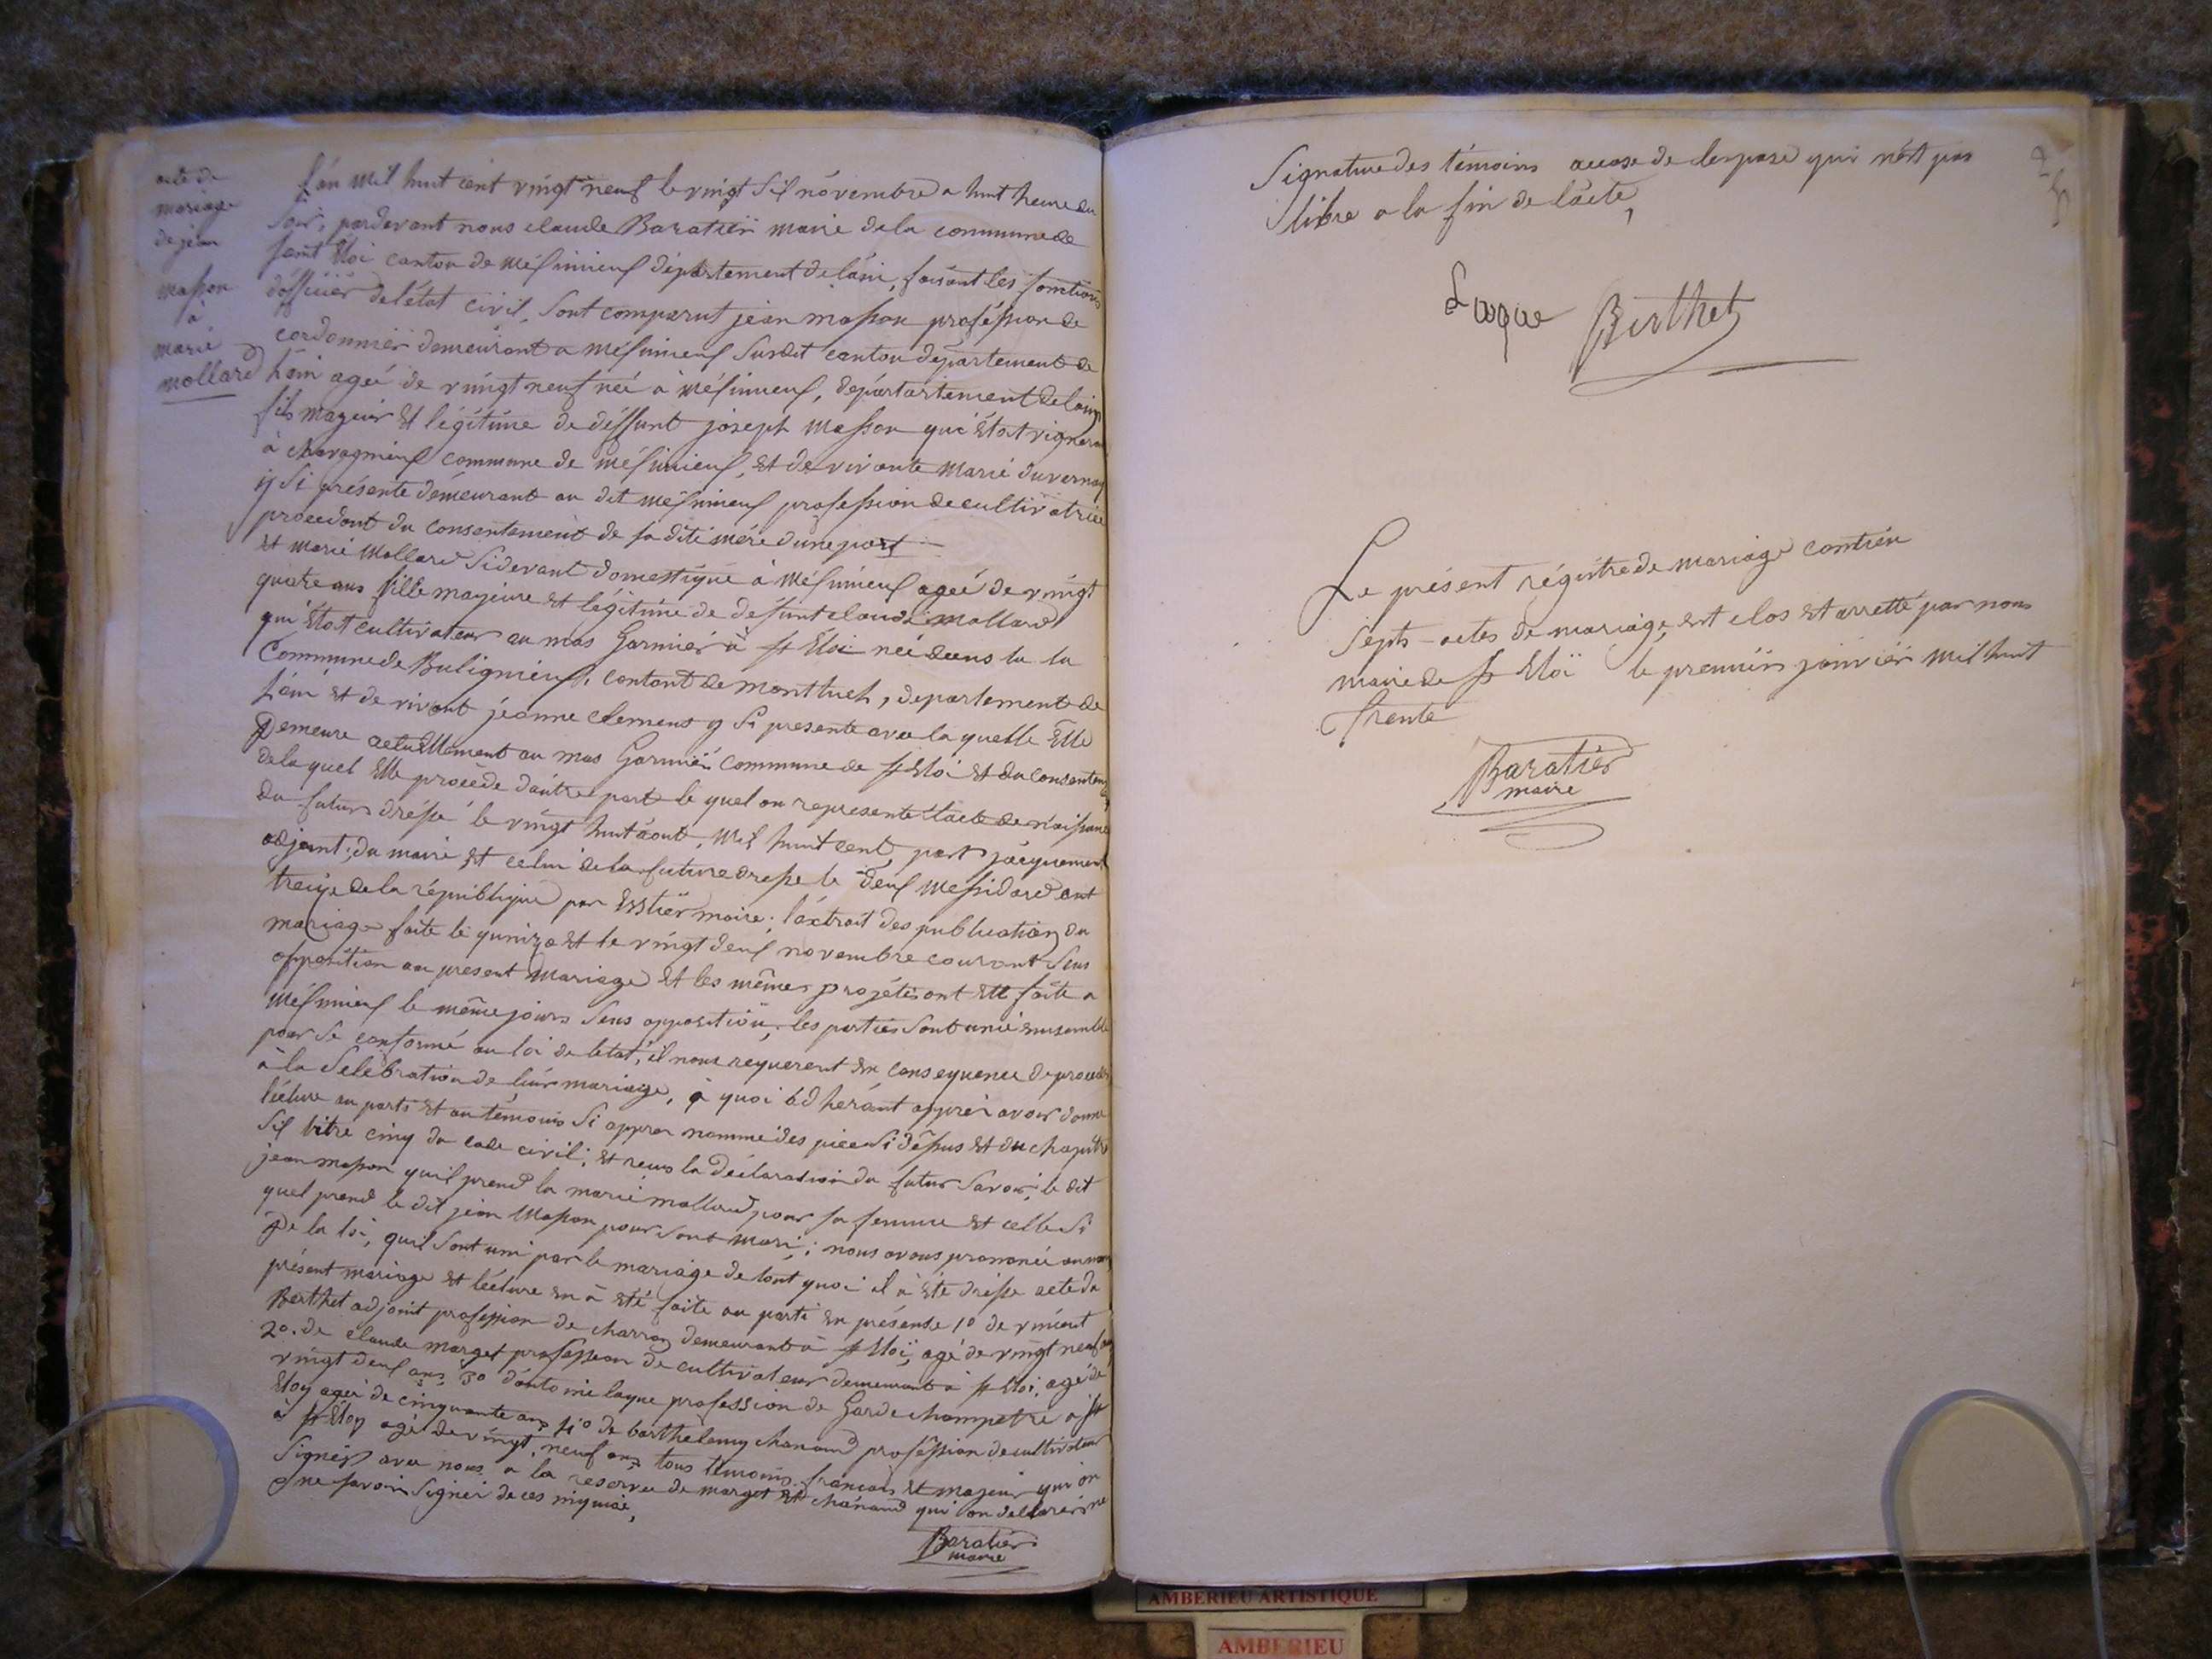 acte de
mariage
de jéan
masson
à
marie
mollard
L'an mil huit cent vingt neuf le vingt sil novembre a huit heure du
soir, pardevant nous claude Baratier maire de la commune de
saint Eloi canton de méssimieuf département de l'ain, faisant les fonctions
d'officier de l'état civil, sont comparut jean masson proféssion de
cordonnier demeurant a méssimieuf susdit canton département de
l'ain ageé de vingt neuf neé à méssimieuf, départartement de l'ain
fils mageur et légitime de déffunt joseph masson qui était vigneron
à chavagnieuf commune de méssimieuf, et de vivante marie duvernay
ij si présente demeurant au dit méssimieuf profession de cultivatrice
procedant du consentement de sa dite mére d'une part
et marie mollard sidevant domestique à méssimieuf ageé de vingt
quatre ans fille majeure et légitime de defunt claude mollard
qui était cultivateur au mas Garnier à st Eloi neé dans la la
commune de Bulignieuf, contant de montluel, departement de
l'ain et de vivant jéanne clemens y si presente avec la quelle Elle
demeure actuellement au mas Garnier commune de st Eloi et du consentem
de la quel Elle procède d'autre part le quel on represente l'acte de naissance
du futur dréssé le vingt huit août, mil huit cent, part jacquemont
adjoint, du maire et celui de la future dressé le deuf messidord ant
treize de la république par Esstier maire; l'extrait des publication du
mariage faite le quinze et le vingt deuf novembre courant sens
opposition au present mariage et les mêmes projétés ont Eté faite a
méssimieuf le même jours sens opposition, les parties sont unie ensemble
pour se conformé au loi de letat, il nous requerent en consequence de proceder
à la Sélébration de leur mariage, à quoi adhérant apprés avoir donné
lécture au parti et au témoins si appres nommé des piece si dessus et du chapitre
sil titre cinq du code civil, et reçus la déclaration du futur savoir, le dit
jean masson quil prend la marie mollard pour sa femme et celle si
quel prend le dit jéan Masson pour sont mari; nous avons prononcé au nom
de la loi, quil sont uni par le mariage de tout quoi il à été dréssé acte du
présent mariage et lécture en à été faite au parti en présense 1° de vincent
Berthet adjoint profession de charron demeurant à st Eloi, agé de vingt neuf ans
2°. de claude marget profession de cultivateur demeurant à st Eloi, agé de
vingt deuf ans 3° d'antoine laque profession de Garde champetre à st
Eloy ageé de cinquante ans 4° de barthelemy chanaud proféssion de cultivateur
à st Eloy agé de vingt neuf ans tous témoins francais et majeur qui on
signés avec nous a la reserve de marget et chanaud qui on déclarér ne
ne savoir signer de ces inquiaé,
Baratier
maire
Signature des témoins acose de lespase qui nést pas
libre a la fin de l'acte,
Laque Berthet
Le présent régistre de mariage contien
septs actes de mariage, est clos et arretté par nous
maire de st Eloi le premier janvier mil huit
trente
Baratier
maire
AMBERIEU ARTISTIQUE
AMBERIEU